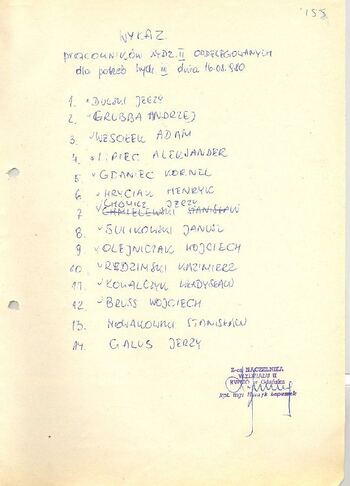 155
WYKAZ
PRACOWNIKÓW WYDZ. II ODDELEGOWANYCH
dla potrzeb Wydz. III dnia 16.08.980
1. DULSKI JERZY
2. GRUBBA ANDRZEJ
3. WESOŁEK ADAM
4. LIPIEC ALEKSANDER
5. GDANIEC KORNEL
6. HRYCIAK HENRYK
JERZY
7 CHMIELEWSKI STANISŁAW
8. SULIKOWSKI JANUSZ
9. OLEJNICZAK WOJCIECH
10. RĘDZIMSKI KAZIMIERZ
11. KOWALCZYK WŁADYSŁAW
12. BRUSS WOJCIECH
13. NOWAKOWSKI STANISŁAW
14. GALUS JERZY
Z-ca NACZELNIKA
WYDZIAŁU II
KWMO w Gdańsku
kpt. mgr Henryk